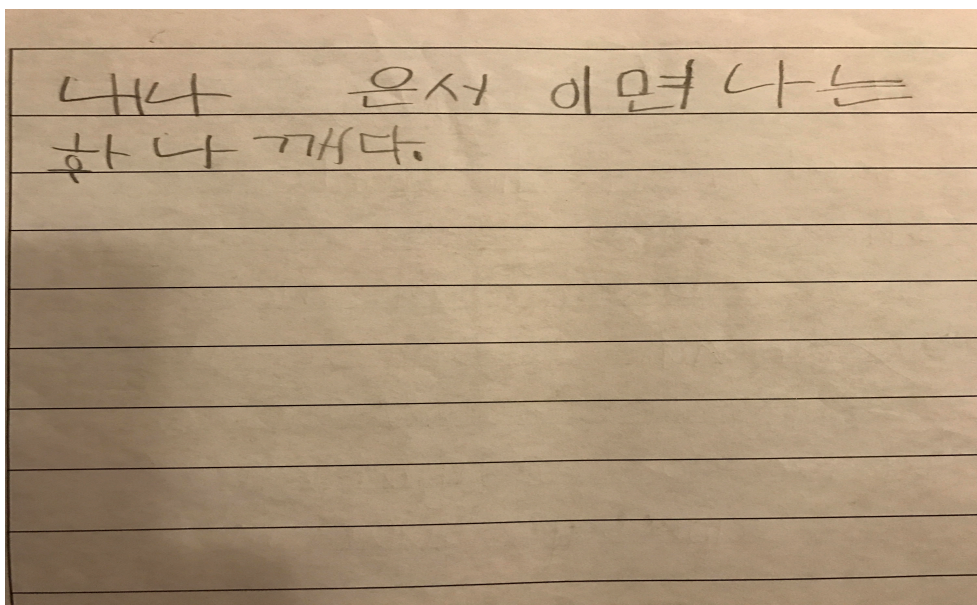 내나 은서 이면 나는
화나 깨다.